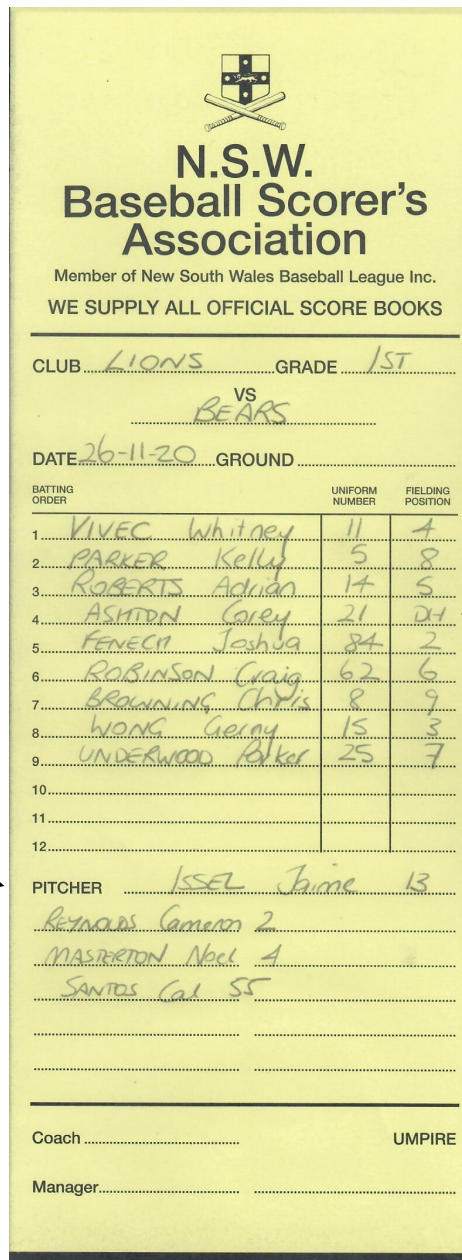 N.S.W.
Baseball Scorer's
Association
Member of New South Wales Baseball League Inc.
WE SUPPLY ALL OFFICIAL SCORE BOOKS
CLUB LIONS GRADE 1ST
VS
BEARS
DATE 26-11-20 GROUND
BATTING ORDER UNIFORM NUMBER FIELDING POSITION
1 VIVEC Whitney 11 4
2 PARKER Kelly 5 8
3 ROBERTS Adrian 14 5
4 ASHTON Corey 21 DH
5 FENECH Joshua 84 2
6 ROBINSON Craig 62 6
7 BROWNING Chris 8 9
8 WONG Gerny 15 3
9 UNDERWOOD Parker 25 7
10
11
12
PITCHER ISSEL Jaime 13
REYNOLDS Cameron 2
MASTERTON Noel 4
SANTOS Cal 55
Coach UMPIRE
Manager